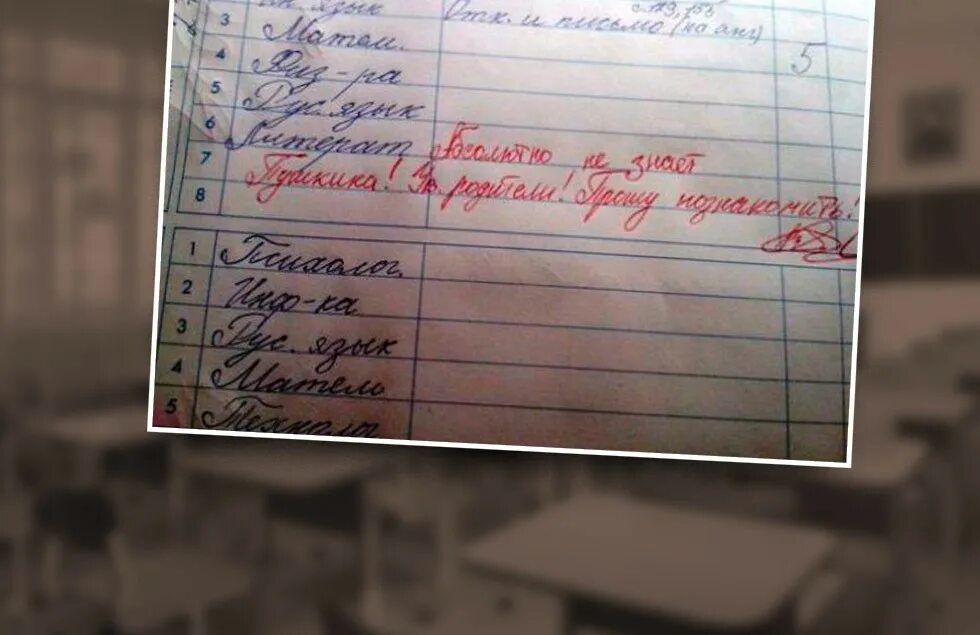 Ин. язык Отк. и письмо (на анг)
3 Матем. 5
4 Физ-ра
5 Рус. язык
6 Литерат Абсолютно не знает
7 Пушкина! Ув. родители! Прошу познакомить!
8
1 Психолог.
2 Инфо-ка
3 Рус. язык
4 Матем
5 Технолог